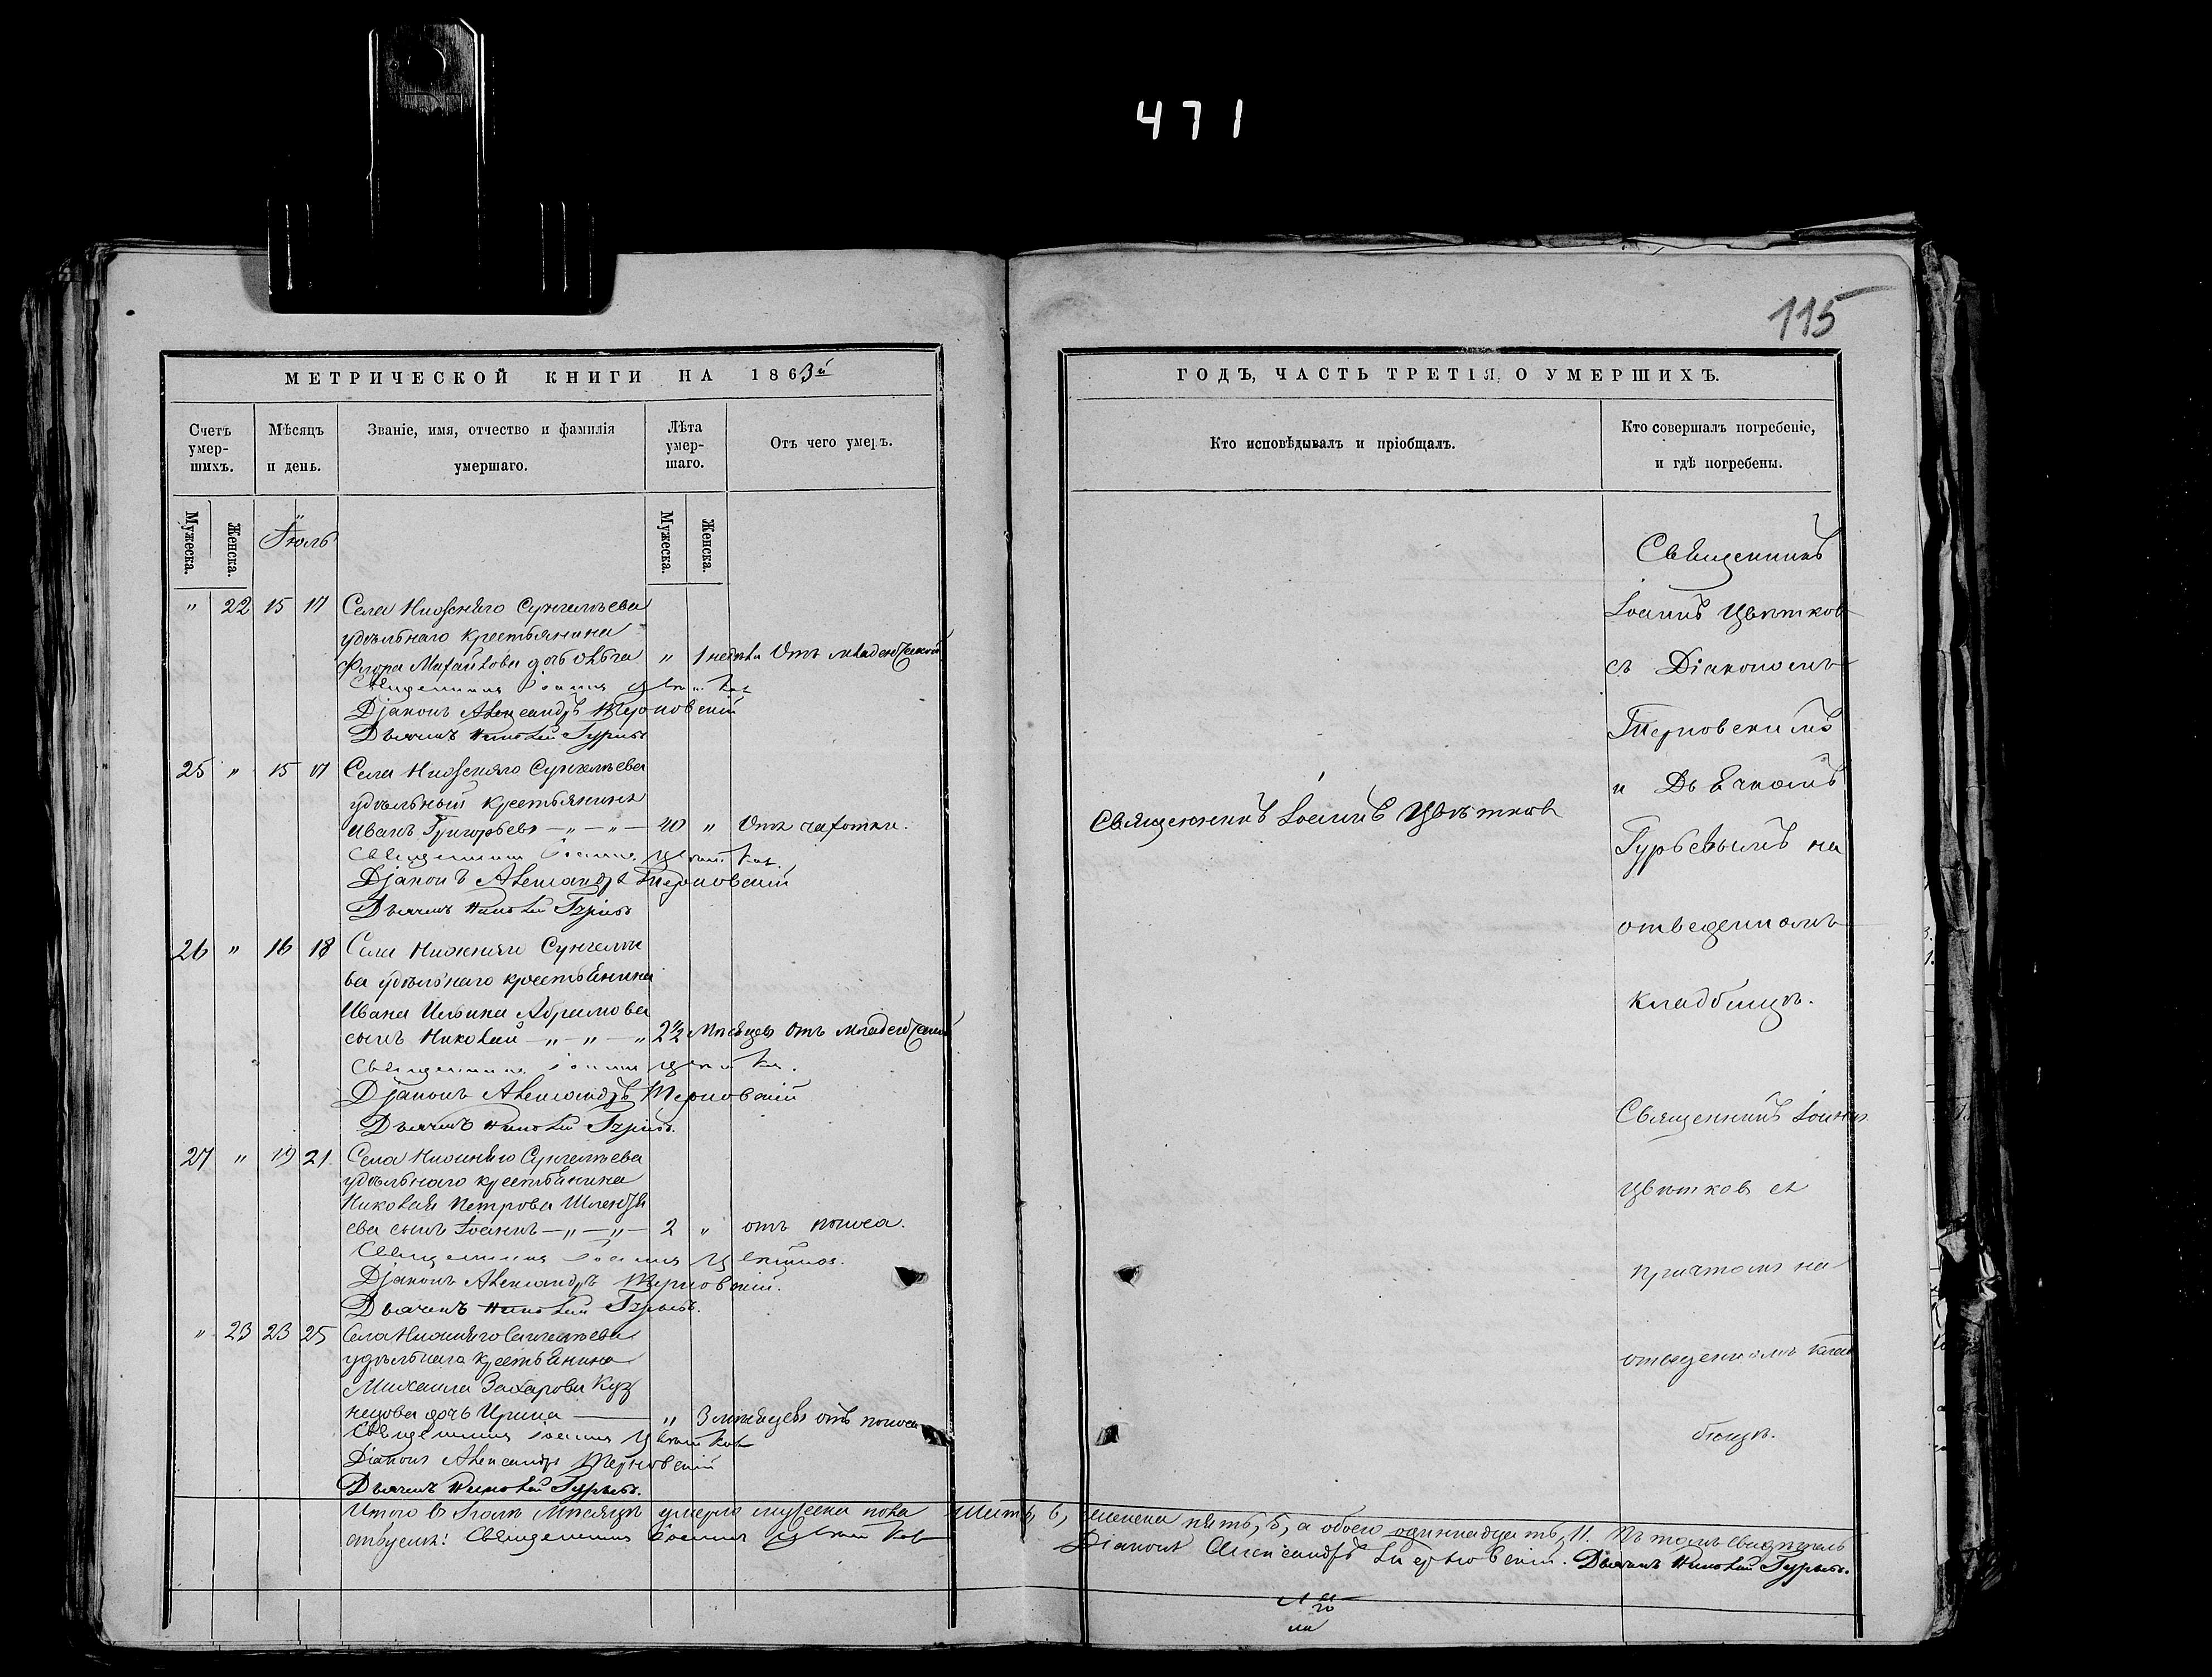 471
115
МЕТРИЧЕСКОЙ КНИГИ НА 1863й
Счетъ умер-шихъ.
Мѣсяцъ и день.
Званіе, имя, отчество и фамилія умершаго.
Лѣта умер-шаго.
Отъ чего умеръ.
Мужеска.
Женска.
Іюль
Мужеска.
Женска.
" 22 15 17 Села Нижняго Сунгелѣева
удѣльнаго крестьянина
Флора Михайлова дочь Ольга " 1 недѣли Отъ младенческой
Священникъ Іоаннъ Цвѣтков
Діаконъ Александръ Терновскій
Дьячекъ Николай Гурьевъ
25 " 15 17 Села Нижняго Сунгелѣева
удѣльный крестьянинъ
Иванъ Григорьевъ — " — " — 40 " Отъ чахотки.
Священникъ Іоаннъ Цвѣтков.
Діаконъ Александръ Терновскій
Дьячекъ Николай Гурьевъ
26 " 16 18 Села Нижняго Сунгелѣ
ва удѣльнаго крестьянина
Ивана Ильина Абрамова
сынъ Николай — " — " — " 2½ Мѣсяцевъ Отъ младенческой
Священникъ Іоаннъ Цвѣтков.
Діаконъ Александръ Терновскій
Дьячекъ Николай Гурьевъ.
27 " 19 21 Села Нижняго Сунгелѣева
удѣльнаго крестьянина
Николая Петрова
ева сынъ Іоаннъ — " — " — 2 " отъ поноса.
Священникъ Іоаннъ Цвѣтков.
Діаконъ Александръ Терновскій.
Дьячекъ Николай Гурьевъ.
" 23 23 25 Села Нижняго Сунгелѣева
удѣльнаго крестьянина
Михаила Захарова Куз
нецова дочь Ирина — " 3 мѣсяцевъ отъ поноса
Священникъ Іоаннъ Цвѣтков
Діаконъ Александръ Терновскій
Дьячекъ Николай Гурьевъ.
Итого въ Іюлѣ Мѣсяцѣ умерло мужеска пола шесть, 6, женска пять, 5, а обоего одиннадцать, 11. Въ томъ свидѣтель
ствуемъ: Священникъ Іоаннъ Цвѣтков Діаконъ Александръ Терновскій. Дьячекъ Николай Гурьевъ.
ГОДЪ, ЧАСТЬ ТРЕТІЯ, О УМЕРШИХЪ.
Кто исповѣдывалъ и пріобщалъ.
Кто совершалъ погребеніе,
и гдѣ погребены.
Священникъ Іоаннъ Цвѣтков
Священникъ
Іоаннъ Цвѣтков
съ Діакономъ
Терновскимъ
и Дьячкомъ
Гурьевымъ на
отведенномъ
кладбищѣ.
Священникъ Іоаннъ
Цвѣтковъ съ
причтомъ на
отведенномъ клад
бищѣ.